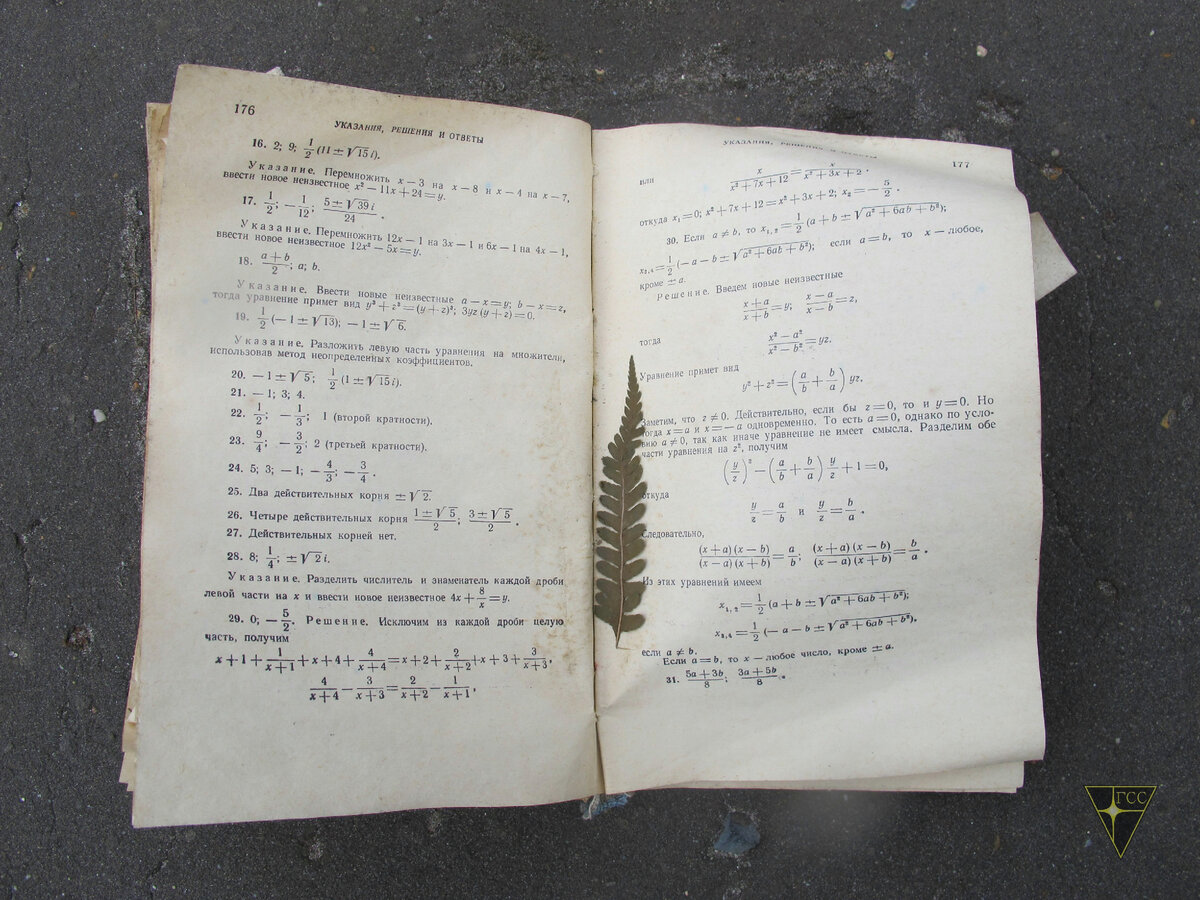 176
УКАЗАНИЯ, РЕШЕНИЯ И ОТВЕТЫ
16. 2; 9; 1/2 (11 ± √15 i).
Указание. Перемножить x − 3 на x − 8 и x − 4 на x − 7,
ввести новое неизвестное x² − 11x + 24 = y.
17. 1/2; −1/12; (5 ± √39 i)/24.
Указание. Перемножить 12x − 1 на 3x − 1 и 6x − 1 на 4x − 1,
ввести новое неизвестное 12x² − 5x = y.
18. (a + b)/2; a; b.
Указание. Ввести новые неизвестные a − x = y; b − x = z,
тогда уравнение примет вид y³ + z³ = (y + z)³; 3yz (y + z) = 0.
19. 1/2 (−1 ± √13); −1 ± √6.
Указание. Разложить левую часть уравнения на множители,
использовав метод неопределенных коэффициентов.
20. −1 ± √5; 1/2 (1 ± √15 i).
21. −1; 3; 4.
22. 1/2; −1/3; 1 (второй кратности).
23. 9/4; −3/2; 2 (третьей кратности).
24. 5; 3; −1; −4/3; −3/4.
25. Два действительных корня ± √2.
26. Четыре действительных корня (1 ± √5)/2; (3 ± √5)/2.
27. Действительных корней нет.
28. 8; 1/4; ± √2 i.
Указание. Разделить числитель и знаменатель каждой дроби
левой части на x и ввести новое неизвестное 4x + 8/x = y.
29. 0; −5/2. Решение. Исключим из каждой дроби целую
часть, получим
x + 1 + 1/(x + 1) + x + 4 + 4/(x + 4) = x + 2 + 2/(x + 2) + x + 3 + 3/(x + 3),
4/(x + 4) − 3/(x + 3) = 2/(x + 2) − 1/(x + 1),
УКАЗАНИЯ, РЕШЕНИЯ И ОТВЕТЫ
177
или
x/(x² + 7x + 12) = x/(x² + 3x + 2).
откуда x₁ = 0; x² + 7x + 12 = x² + 3x + 2; x₂ = −5/2.
30. Если a ≠ b, то x₁,₂ = 1/2 (a + b ± √(a² + 6ab + b²);
x₃,₄ = 1/2 (−a − b ± √(a² + 6ab + b²); если a = b, то x — любое,
кроме ± a.
Решение. Введем новые неизвестные
(x + a)/(x + b) = y; (x − a)/(x − b) = z,
тогда
(x² − a²)/(x² − b²) = yz.
Уравнение примет вид
y² + z² = (a/b + b/a) yz.
Заметим, что z ≠ 0. Действительно, если бы z = 0, то и y = 0. Но
тогда x = a и x = −a одновременно. То есть a = 0, однако по усло-
вию a ≠ 0, так как иначе уравнение не имеет смысла. Разделим обе
части уравнения на z², получим
(y/z)² − (a/b + b/a) y/z + 1 = 0,
откуда
y/z = a/b и y/z = b/a.
Следовательно,
(x + a)(x − b)/(x − a)(x + b) = a/b; (x + a)(x − b)/(x − a)(x + b) = b/a.
Из этих уравнений имеем
x₁,₂ = 1/2 (a + b ± √(a² + 6ab + b²);
x₃,₄ = 1/2 (−a − b ± √(a² + 6ab + b²),
если a ≠ b.
Если a = b, то x — любое число, кроме ± a.
31. (5a + 3b)/8; (3a + 5b)/8.
ГСС